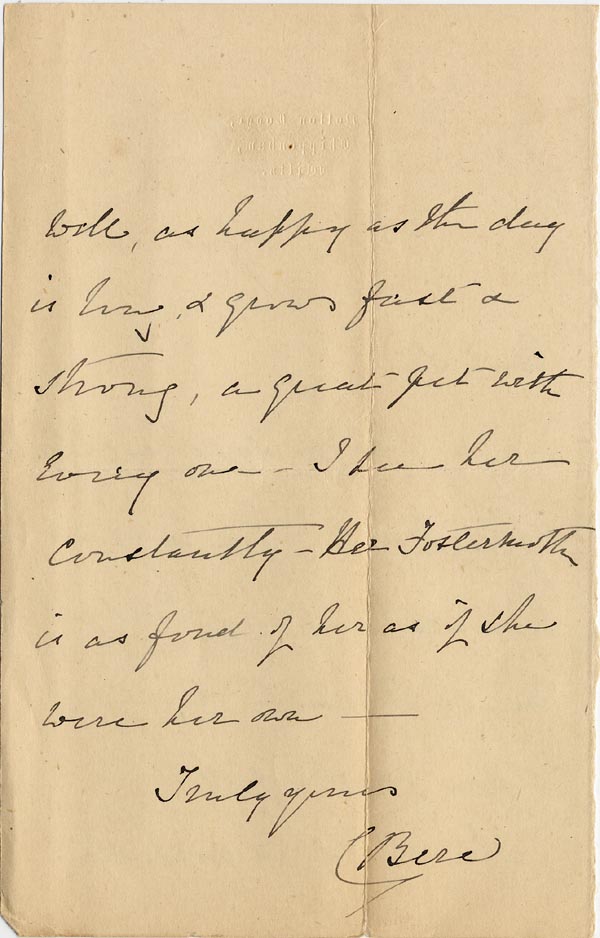 well, as happy as the day
is long, & grows fast &
strong, a great pet with
every one - I see her
constantly - Her Fostermother
is as fond of her as if she
were her own —
Truly yours
C Bere